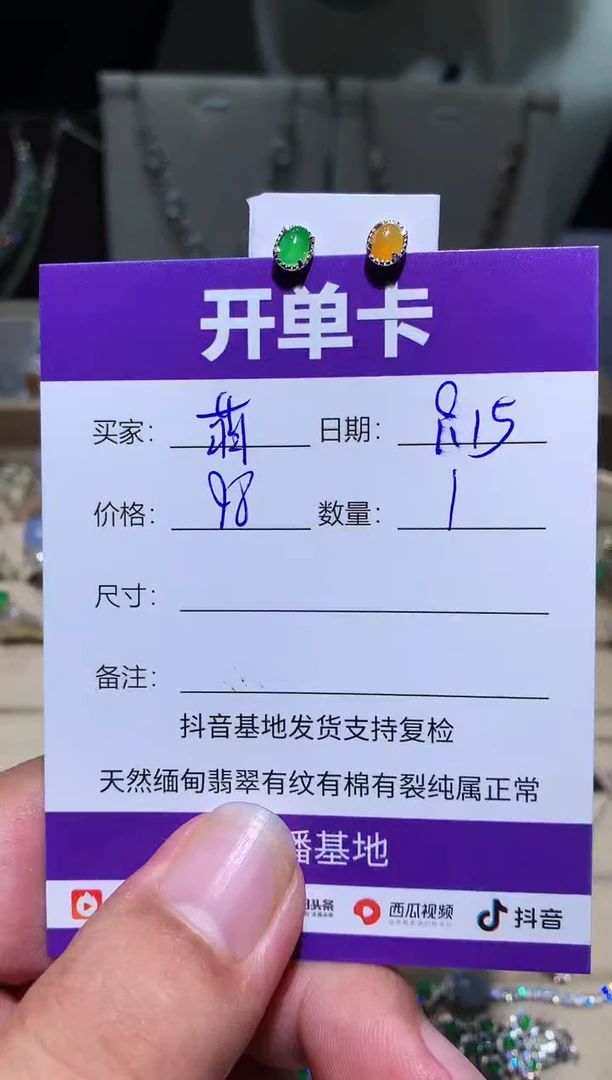 开单卡
买家： 萌 日期： 8.15
价格： 98 数量： 1
尺寸：
备注：
抖音基地发货支持复检
天然缅甸翡翠有纹有棉有裂纯属正常
播基地
头条 西瓜视频 抖音